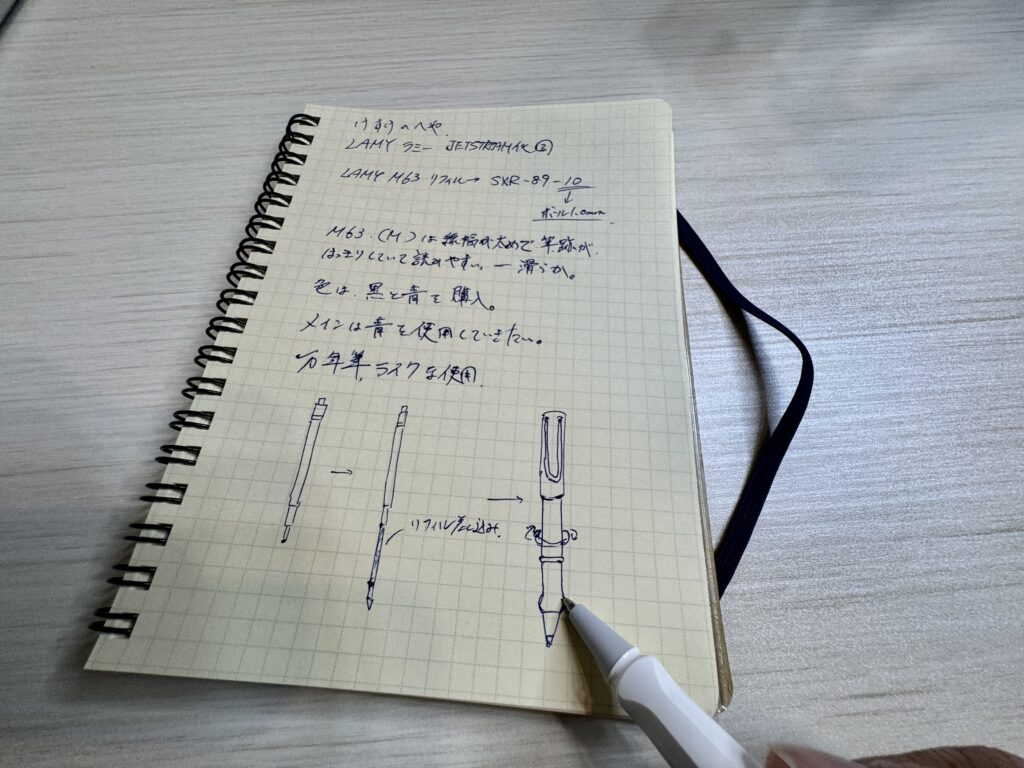 けすけのへや
LAMY ラミー JETSTREAM化②
LAMY M63 リフィル→ SXR-89-10
↓
ボール1.0mm
M63.(M)は線幅が太めで筆跡が
はっきりしていて読みやすい。ー滑らか。
色は、黒と青を購入。
メインは青を使用していきたい。
万年筆ライクな使用
→
→
リフィル差し込み